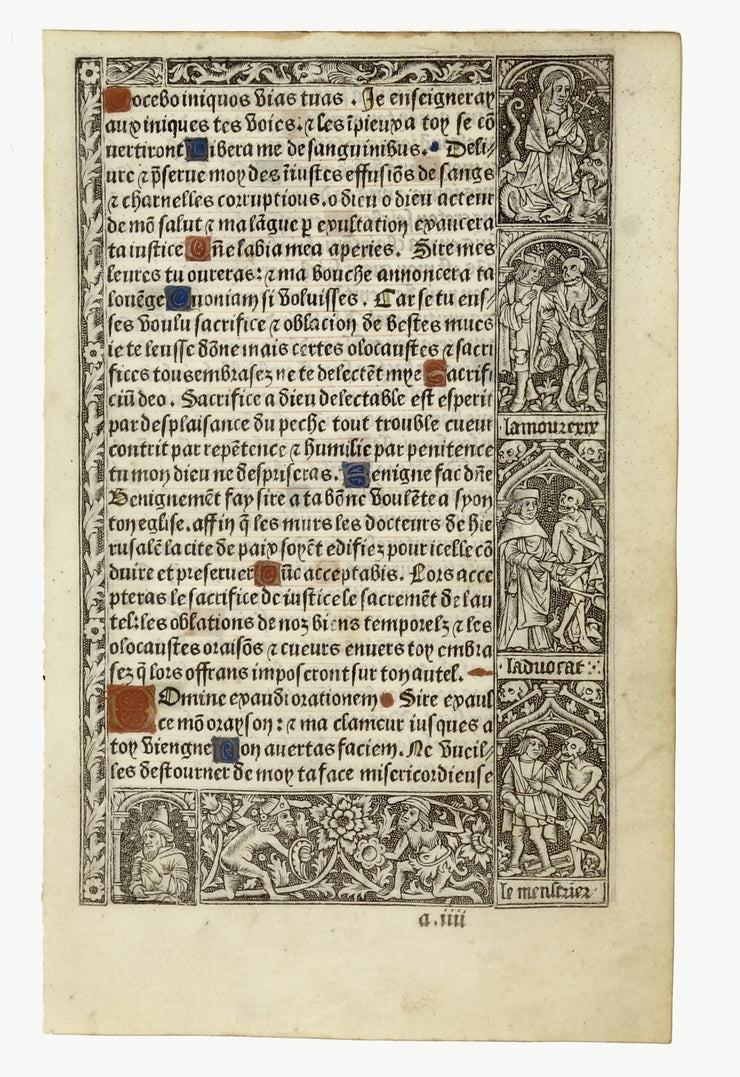 Docebo iniquos vias tuas . Je enseigneray
aux iniques tes voies. ⁊ les ĩpieux a toy se cõ
vertiront Libera me de sanguinibus. Deli/
ure ⁊ p̃serue moy des ĩiustes effusiõs de sangs
⁊ charnelles corruptions. o dieu o dieu acteur
de mõ salut ⁊ ma lãgue ꝑ exultation exaucera
ta iustice Dñe labia mea aperies. Sire mes
leures tu oureras: ⁊ ma bouche annoncera ta
louẽge Quoniam si voluisses . Car se tu eus/
ses voulu sacrifice ⁊ oblacion de bestes mues
ie te leusse dõne mais certes olocaustes ⁊ sacri
fices tous embrasez ne te delectẽt mye Sacrifi
ciũ deo . Sacrifice a dieu delectable est esperit
par desplaisance du peche tout trouble cueur
contrit par repẽtence ⁊ humilie par penitence
tu mon dieu ne despriseras. Benigne fac dñe
Benignemẽt fay sire a ta bõne voulẽte a syon
ton eglise. affin q̃ les murs les docteurs de hie
rusalẽ la cite de paix soyẽt edifiez pour icelle cõ
duire et preseruer Tũc acceptabis. Lors acce
pteras le sacrifice de iustice le sacremẽt de lau
tel: les oblations de noz biens temporelz ⁊ les
olocaustes oraisõs ⁊ cueurs enuers toy embra
sez q̃ lors offrans imposeront sur ton autel.
Domine exaudi orationem Sire exaul
ce mõ orayson: ⁊ ma clameur iusques a
toy viengne Non auertas faciem. Ne vueil
les destourner de moy ta face misericordieuse
laduocat
le menestrier
a.iiii